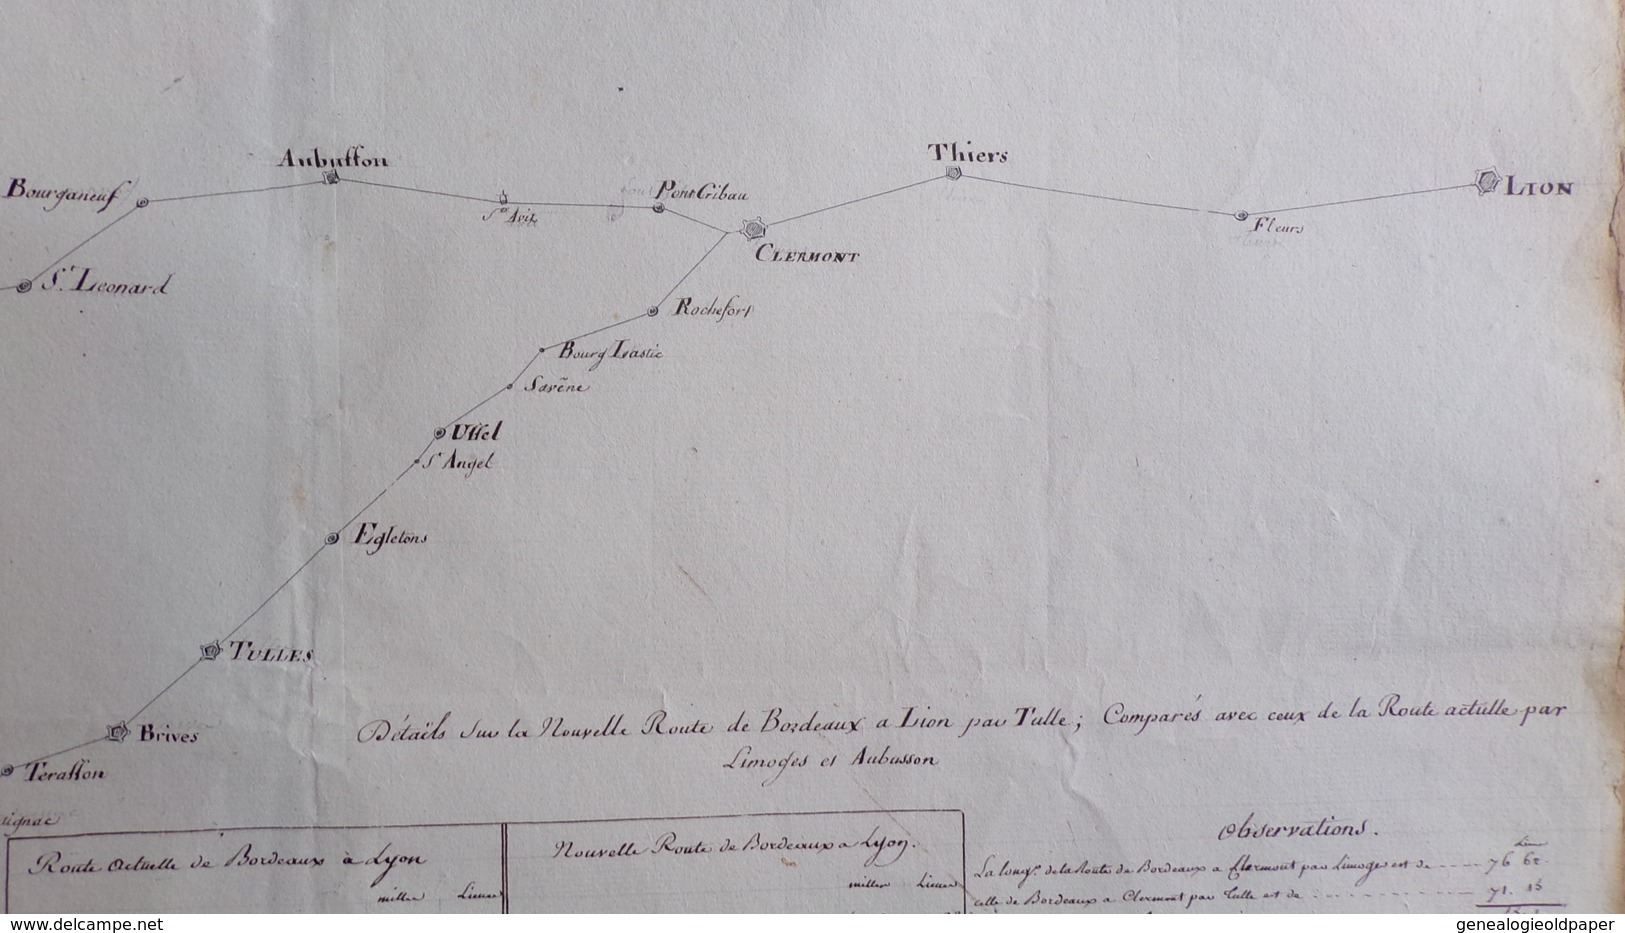 Aubusson
Thiers
Bourganeuf
Pont Gibau
Lion
St Avit
Fleurs
Clermont
St. Leonard
Rochefort
Bourg Lastic
Savêne
Ussel
St Angel
Egletons
Tulles
Brives
Terasson
Détaïls sur la Nouvelle Route de Bordeaux a Lion par Tulle; Comparés avec ceux de la Route actulle par
Limoges et Aubusson
Observations.
Route actuelle de Bordeaux à Lyon
milles Lieues
Nouvelle Route de Bordeaux a Lyon.
milles Lieues
Lieues
La longr. de la Route de Bordeaux a Clermont par Limoges est de 76 62.
celle de Bordeaux a Clermont par Tulle est de 71. 13
delcampe.net
genealogieoldpaper